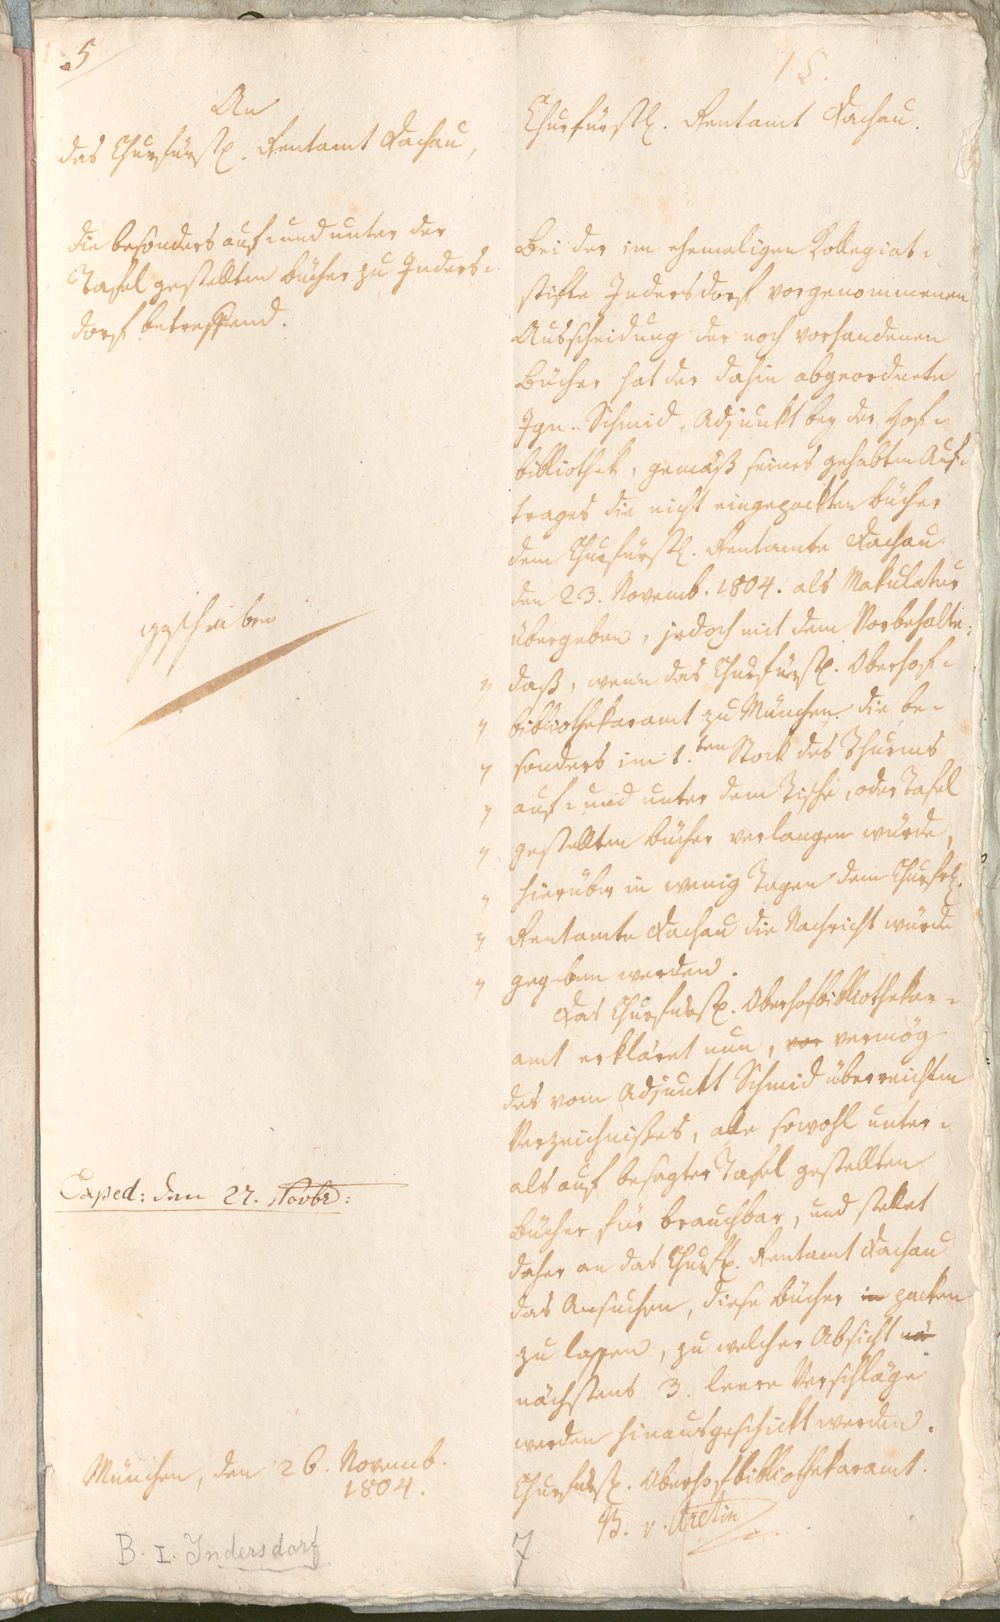 5
An
das Churfürstl. Rentamt Dachau,
die besonders auf- und unter der
Tafel gestellten Bücher zu Inders-
dorf betreffend.
geschrieben
Exped: den 27. Novbr:
München, den 26. Novemb.
1804.
B. I. Indersdorf
15.
Churfürstl. Rentamt Dachau.
Bei der im ehemaligen Kollegiat-
stifte Indersdorf vorgenommenen
Ausscheidung der noch vorhandenen
Bücher hat der dahin abgeordnete
Ign. Schmid, Adjunkt bey der Hof-
bibliothek, gemäß seines gehabten Auf-
trages die nicht eingepackten Bücher
dem Churfürstl. Rentamte Dachau
den 23. Novemb. 1804. als Makulatur
übergeben, jedoch mit dem Vorbehalte:
" daß, wenn das Churfürstl. Oberhof-
" bibliothekaramt zu München die be-
" sonders im 1.ten Stock des Thurms
" auf- und unter dem Tische, oder Tafel
" gestellten Bücher verlangen würde,
" hierüber in wenig Tagen dem Churfrtl.
" Rentamte Dachau die Nachricht würde
" gegeben werden.
Das Churfürstl. Oberhofbibliothekar-
amt erkläret nun, vor vermög
des vom Adjunkt Schmid überreichten
Verzeichnißes, alle sowohl unter-
als auf besagter Tafel gestellten
Bücher für brauchbar, und stellet
daher an das Churftl. Rentamt Dachau
das Ansuchen, diese Bücher in packen
zu lassen, zu welcher Absicht nä
nächstens 3. leere Verschläge
werden hinausgeschickt werden.
Churfürstl. Oberhofbibliothekaramt.
B. v. Aretin
7